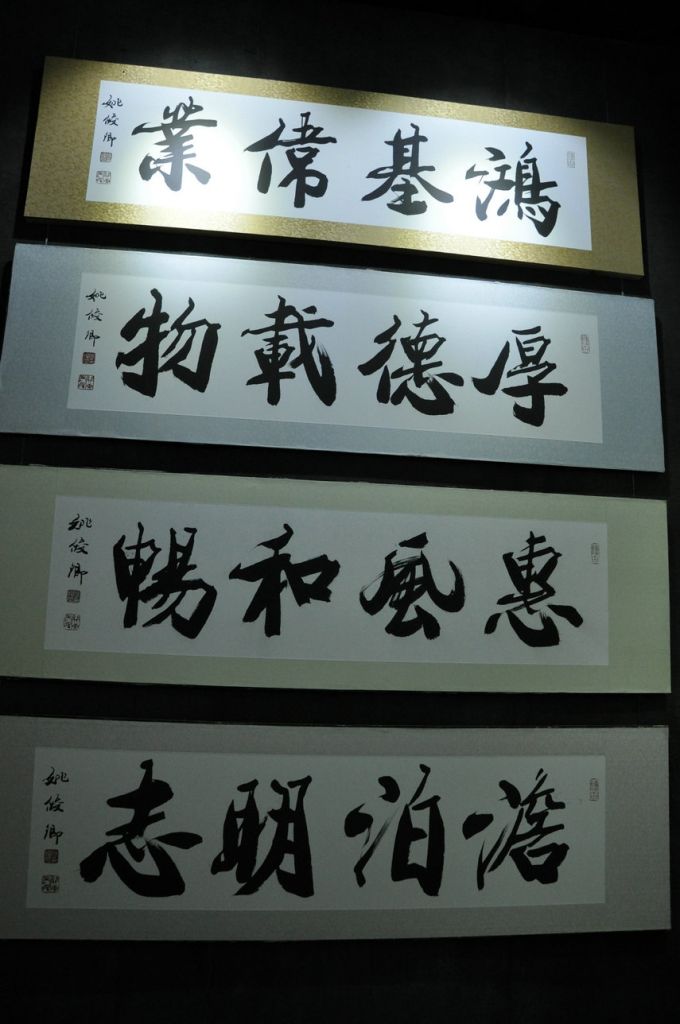 鴻基偉業
姚俊卿
厚德載物
姚俊卿
惠風和暢
姚俊卿
澹泊明志
姚俊卿